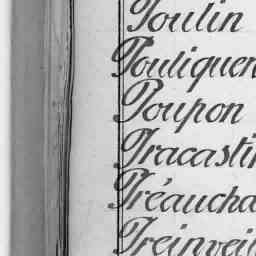 Poulin
Pouliquen
Poupon
Pracastin
Préaucha
Preinveil